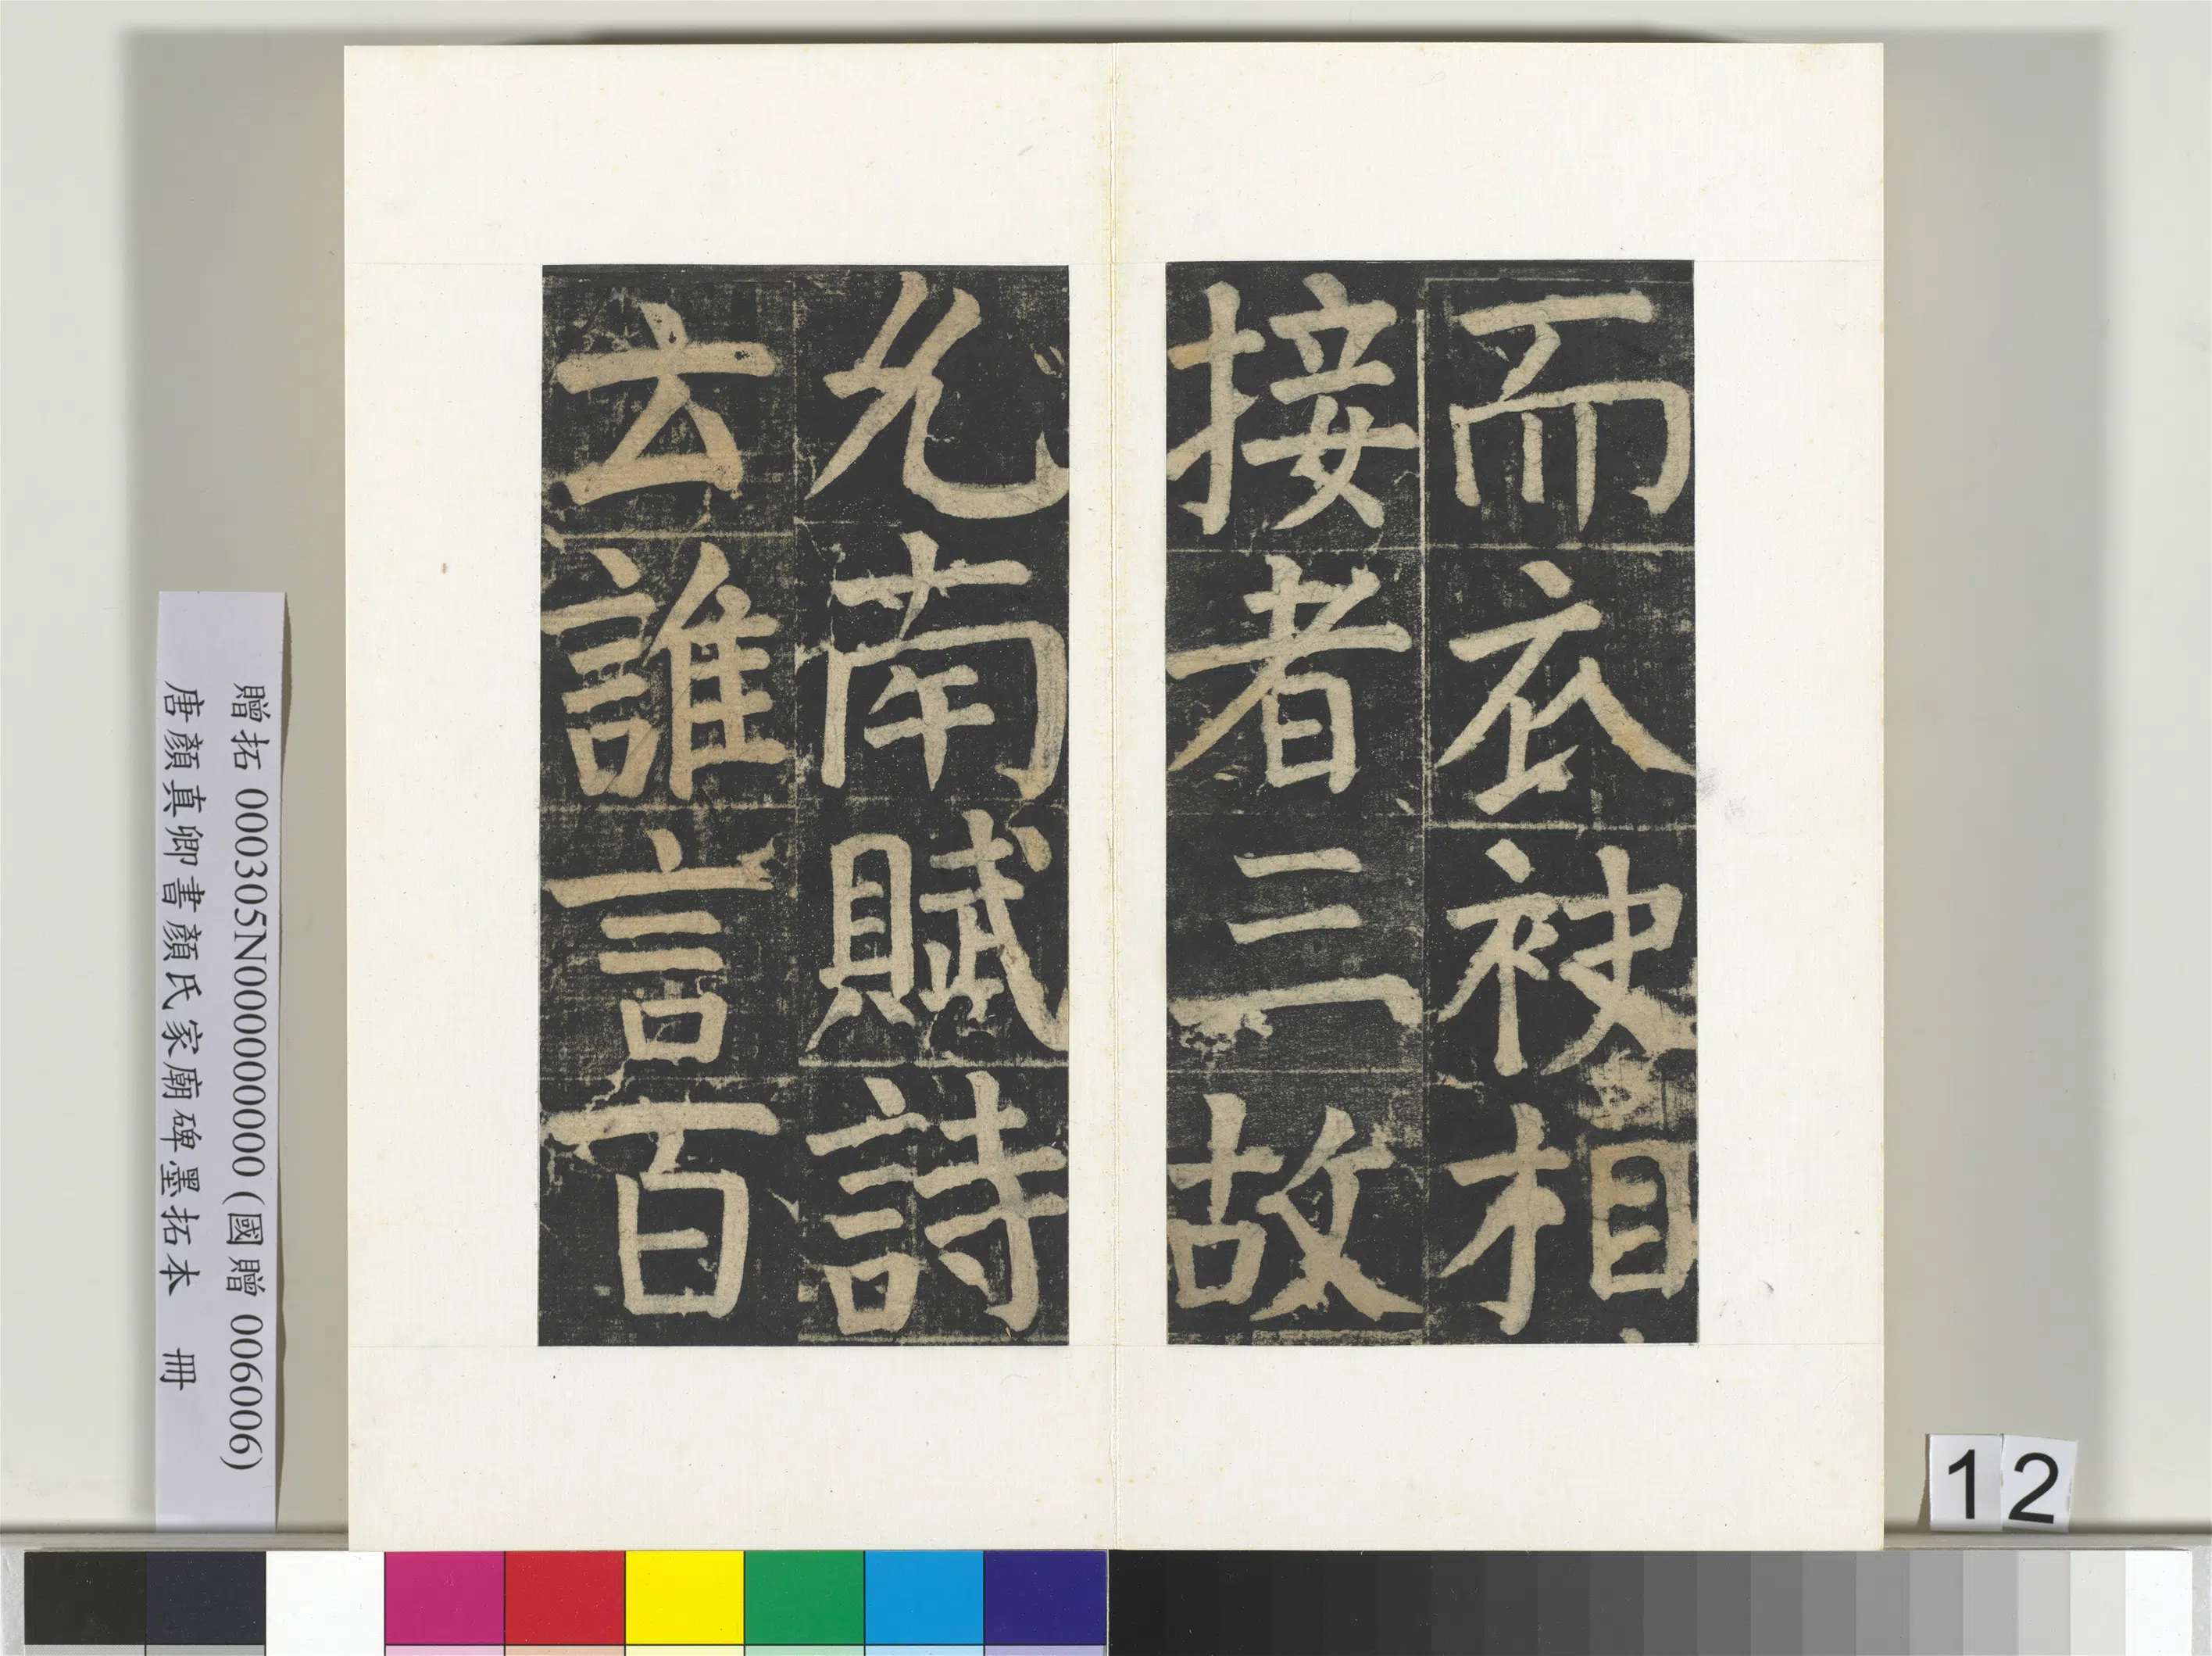 而衣袂相
接者三故
允南賦詩
云誰言百
贈拓 000305N000000000 (國贈 006006)
唐顏真卿書顏氏家廟碑墨拓本 冊
12